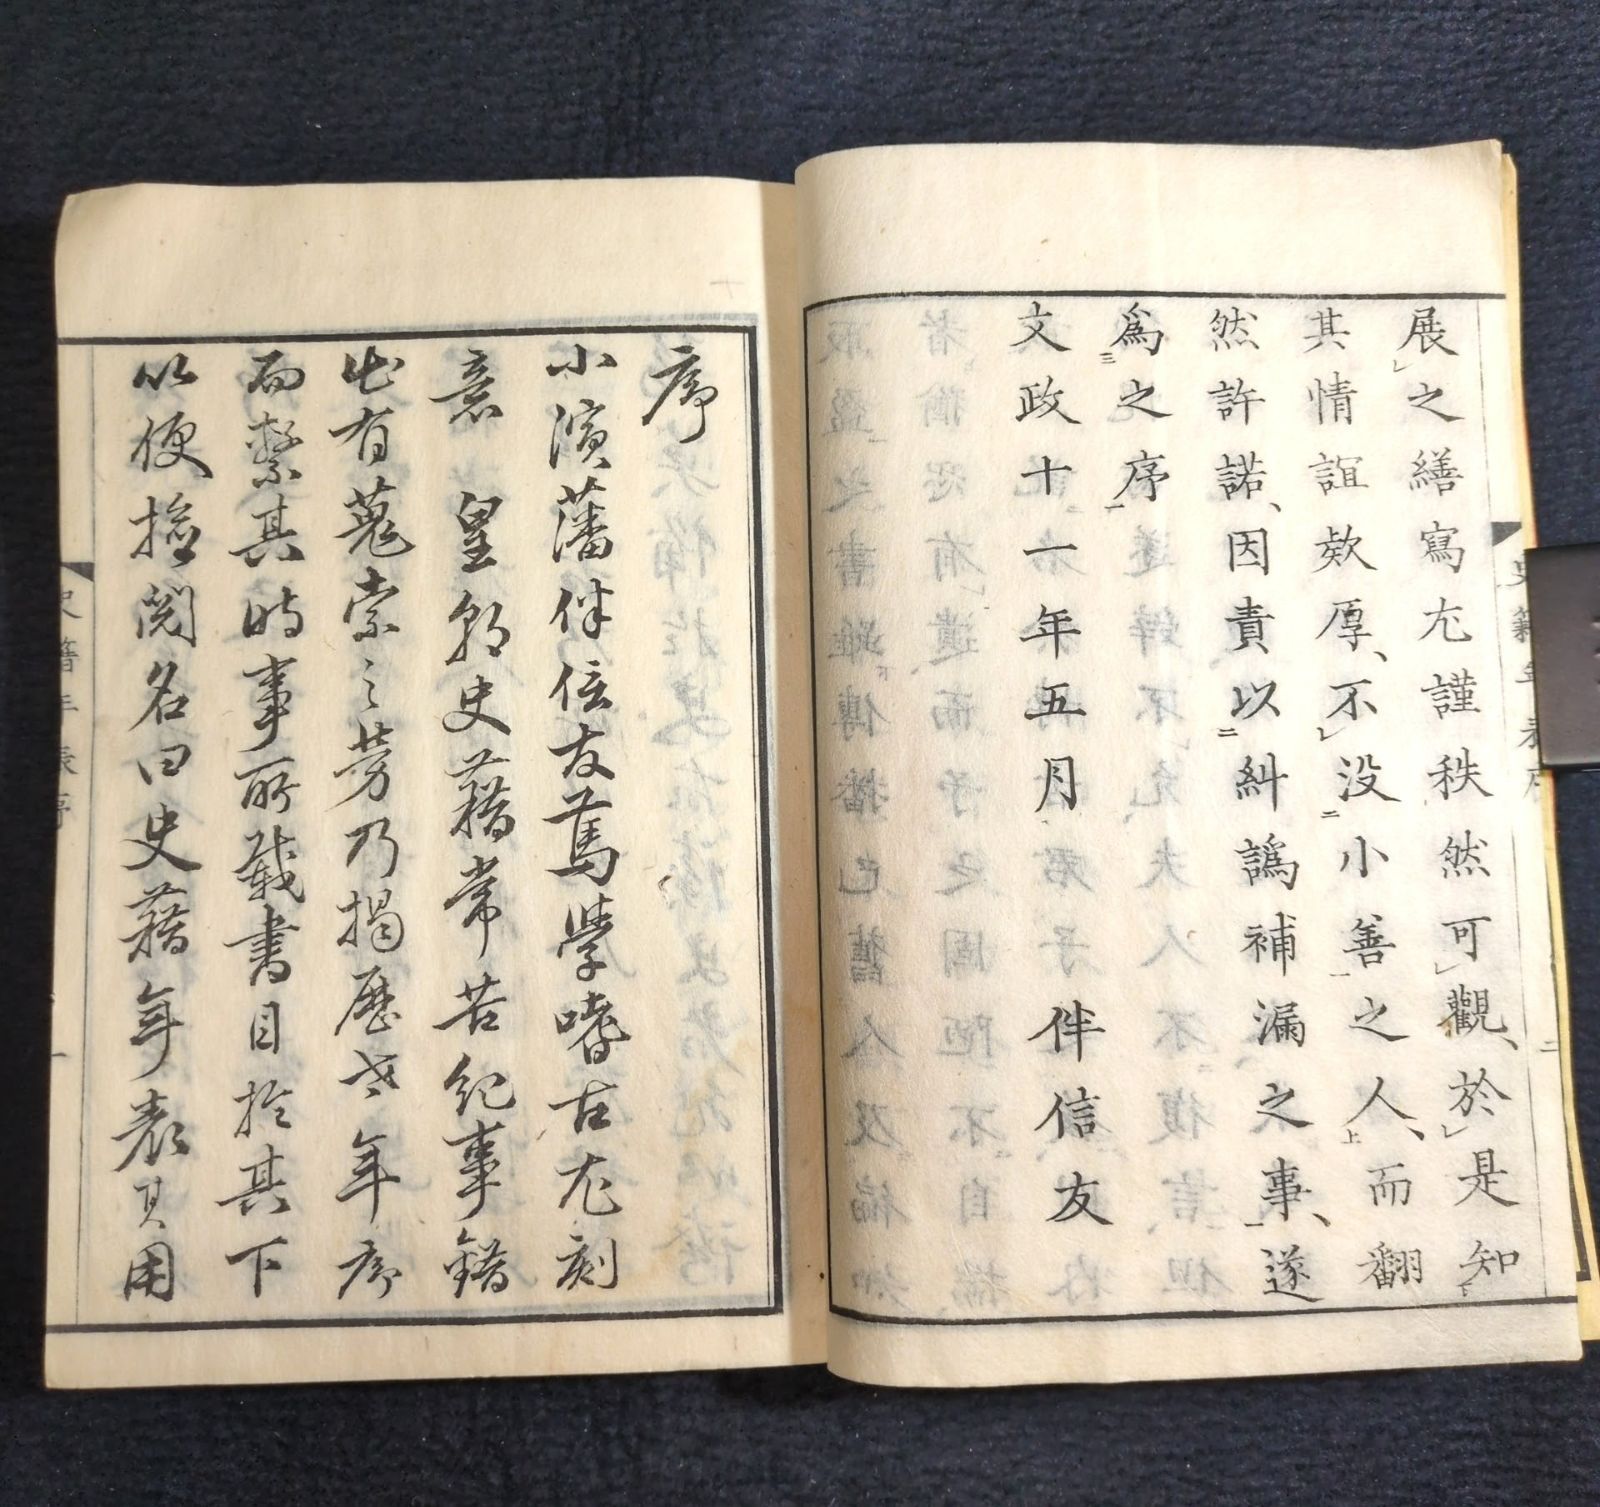 展之繕寫尤謹秩然可觀、於是知
其情誼欵厚、不没小善之人、而翻
然許諾、因責以糾譌補漏之事、遂
爲之序
文政十一年五月 伴信友
序
小濱藩伴信友篤學嗜古尤刻
意 皇朝史藉常苦紀事錯
出有蒐索之勞乃揭歷世年序
而繫其時事所載書目於其下
以便撿閱名曰史藉年表其用
史籍年表序